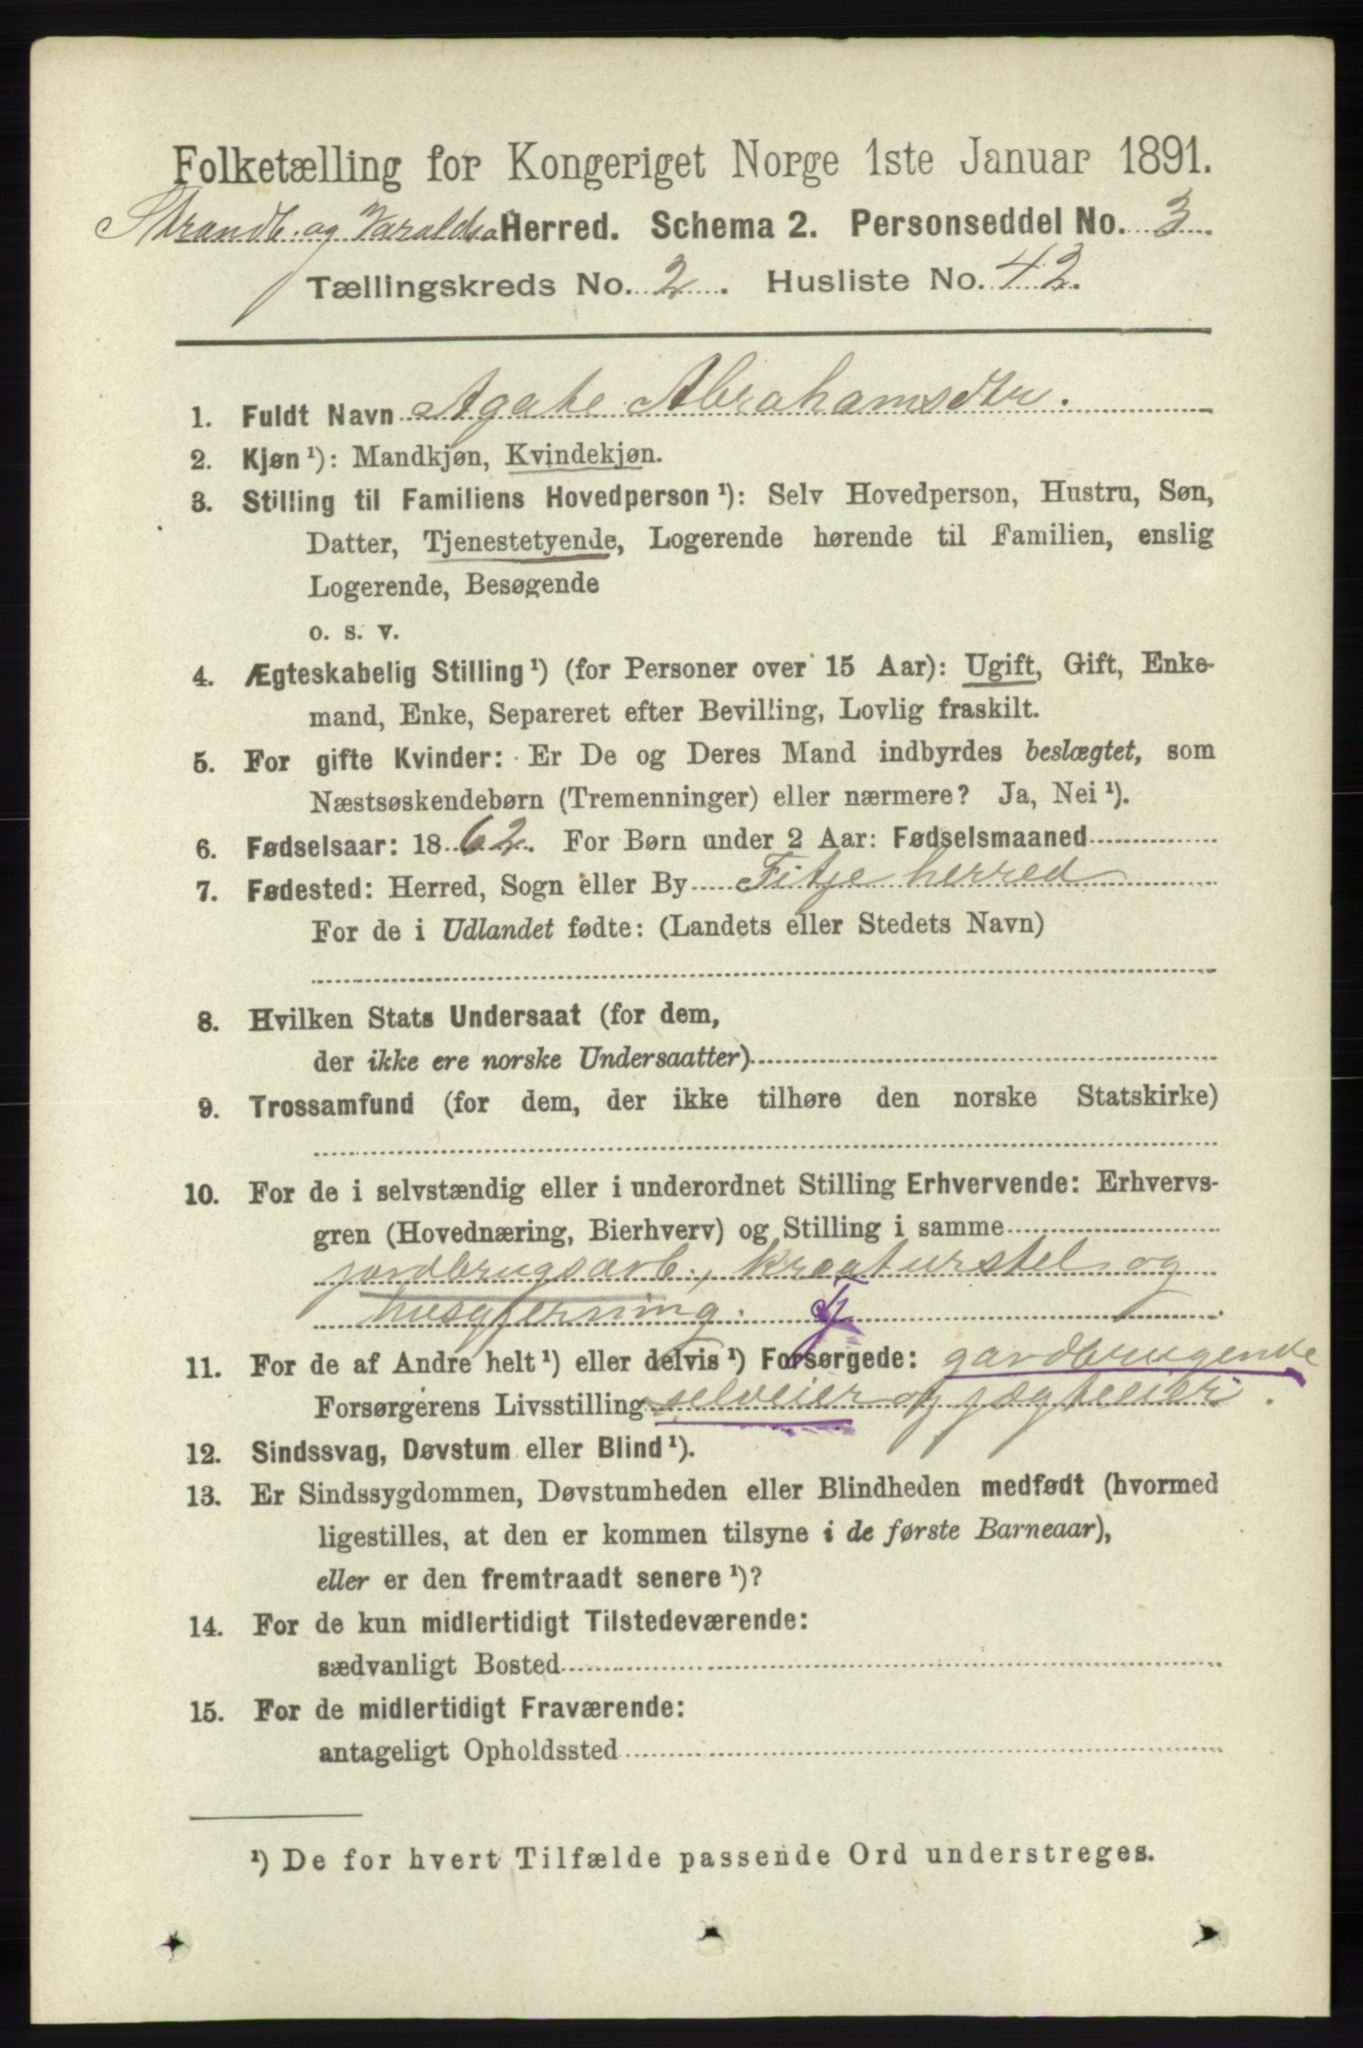 Folketælling for Kongeriget Norge 1ste Januar 1891.
Strandb. og Varaldsø Herred. Schema 2. Personseddel No. 3
Tællingskreds No. 2. Husliste No. 42.
1. Fuldt Navn Agate Abrahamsdtr.
2. Kjøn ¹): Mandkjøn, Kvindekjøn.
3. Stilling til Familiens Hovedperson ¹): Selv Hovedperson, Hustru, Søn,
Datter, Tjenestetyende, Logerende hørende til Familien, enslig
Logerende, Besøgende
o. s. v.
4. Ægteskabelig Stilling ¹) (for Personer over 15 Aar): Ugift, Gift, Enke-
mand, Enke, Separeret efter Bevilling, Lovlig fraskilt.
5. For gifte Kvinder: Er De og Deres Mand indbyrdes beslægtet, som
Næstsøskendebørn (Tremenninger) eller nærmere? Ja, Nei ¹).
6. Fødselsaar: 1862. For Børn under 2 Aar: Fødselsmaaned
7. Fødested: Herred, Sogn eller By Fitje herred
For de i Udlandet fødte: (Landets eller Stedets Navn)
8. Hvilken Stats Undersaat (for dem,
der ikke ere norske Undersaatter)
9. Trossamfund (for dem, der ikke tilhøre den norske Statskirke)
10. For de i selvstændig eller i underordnet Stilling Erhvervende: Erhvervs-
gren (Hovednæring, Bierhverv) og Stilling i samme
jordbrugsarb., kreaturstel og
husgjerning. Tj
11. For de af Andre helt ¹) eller delvis ¹) Forsørgede: gardbrugende
Forsørgerens Livsstilling selveier og jægteeier.
12. Sindssvag, Døvstum eller Blind ¹).
13. Er Sindssygdommen, Døvstumheden eller Blindheden medfødt (hvormed
ligestilles, at den er kommen tilsyne i de første Barneaar),
eller er den fremtraadt senere ¹)?
14. For de kun midlertidigt Tilstedeværende:
sædvanligt Bosted
15. For de midlertidigt Fraværende:
antageligt Opholdssted
¹) De for hvert Tilfælde passende Ord understreges.